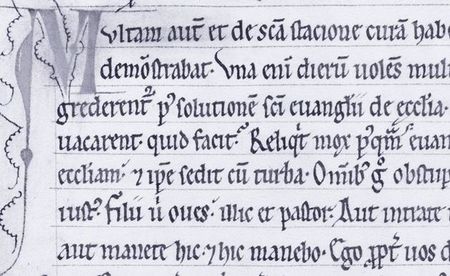 Multam aut̅ et de sc̅a stacione cura̅ habe
demo̅strabat. Vna eni̅ dieru̅ uole̅s mul
grederent᷑ p᷒ solutione̅ sc̅i euang̅lii de eccl̅ia.
uacarent. quid facit᷑. Reliq̇t mox p᷒q̅m euan
eccl̅iam. ⁊ ip̅e sedit cu̅ turba. Om̅ib᷒ g̊ obstup
iust᷒. Filii u̇ oues. illic et pastor. Aut intrate
aut manete hic. ⁊ hic manebo. Ego p̅p̅t᷑ uos d